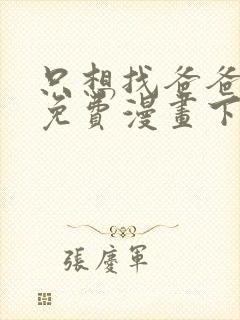 只想找爸爸
免費漫畫下
張慶軍